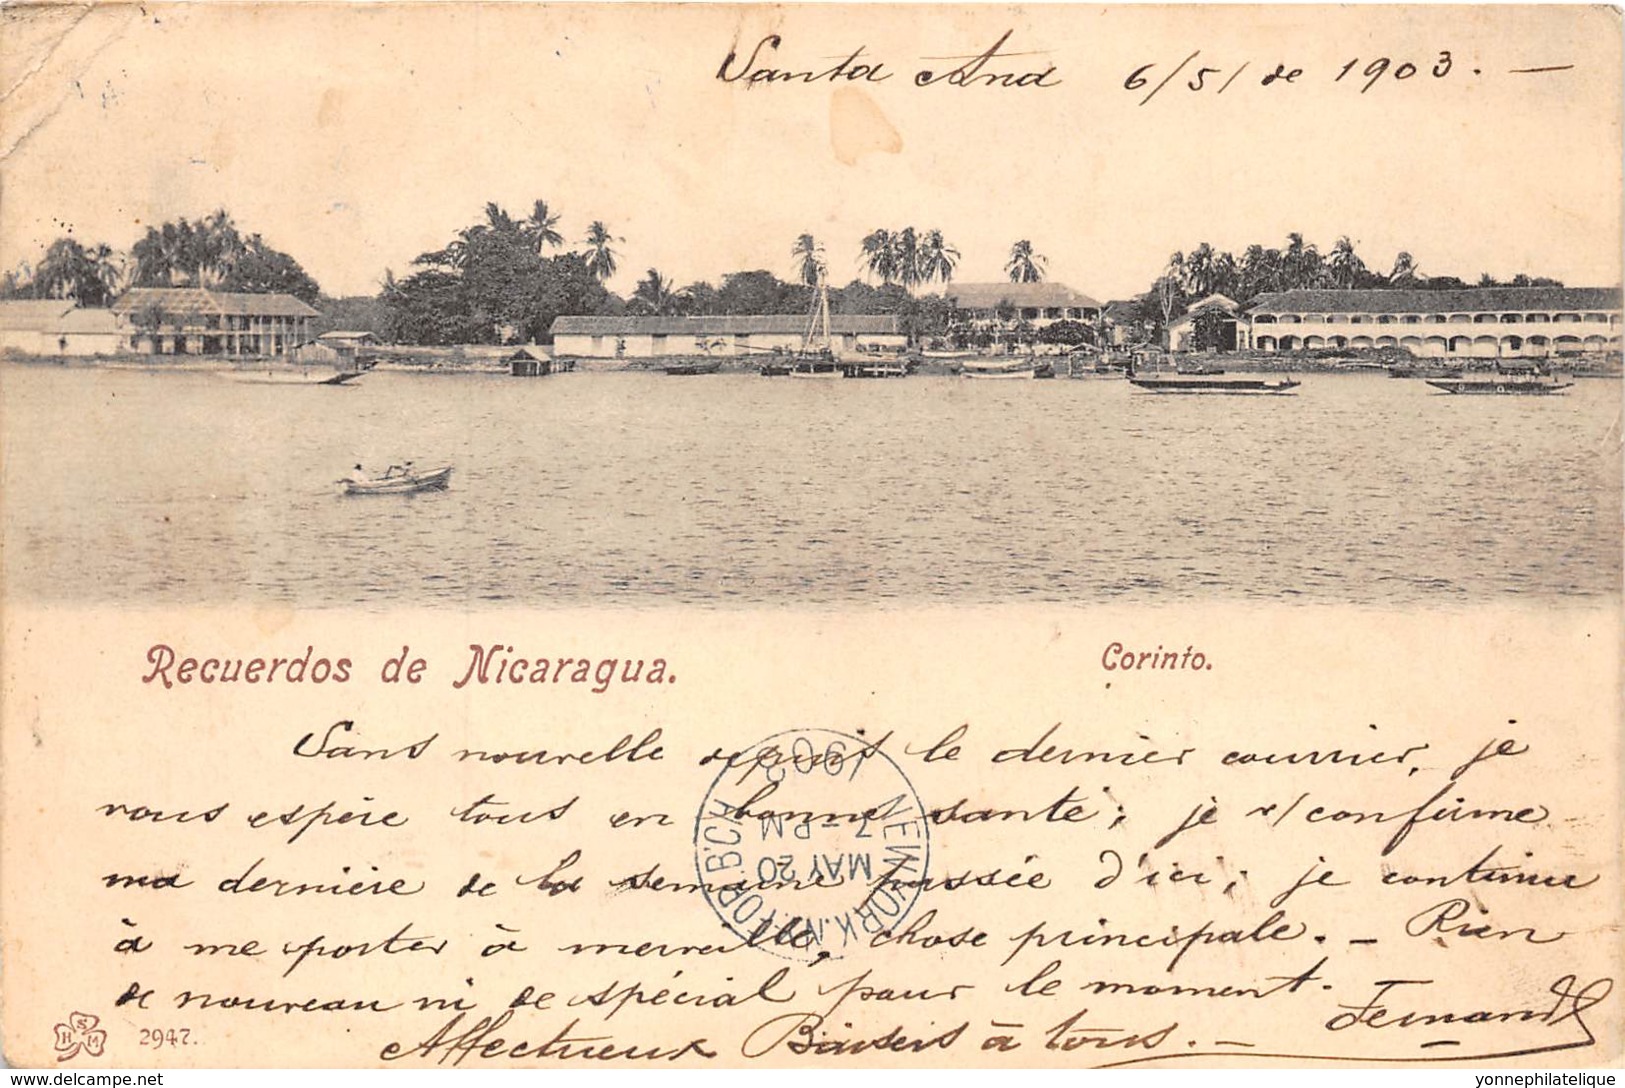 Santa Ana 6/5/ de 1903. —
Recuerdos de Nicaragua.
Corinto.
Sans nouvelle depuis le dernier courrier, je
vous espère tous en bonne santé; je v/confirme
ma dernière de la semaine passée d'ici; je continue
à me porter à merveille, chose principale. — Rien
de nouveau ni de spécial pour le moment.
Affectueux Baisers à tous. — Fernand
NEW YORK, N.Y. FOR. B'CH
MAY 20
7-PM
1903
HSM
2947.
yonnephilatelique
www.delcampe.net